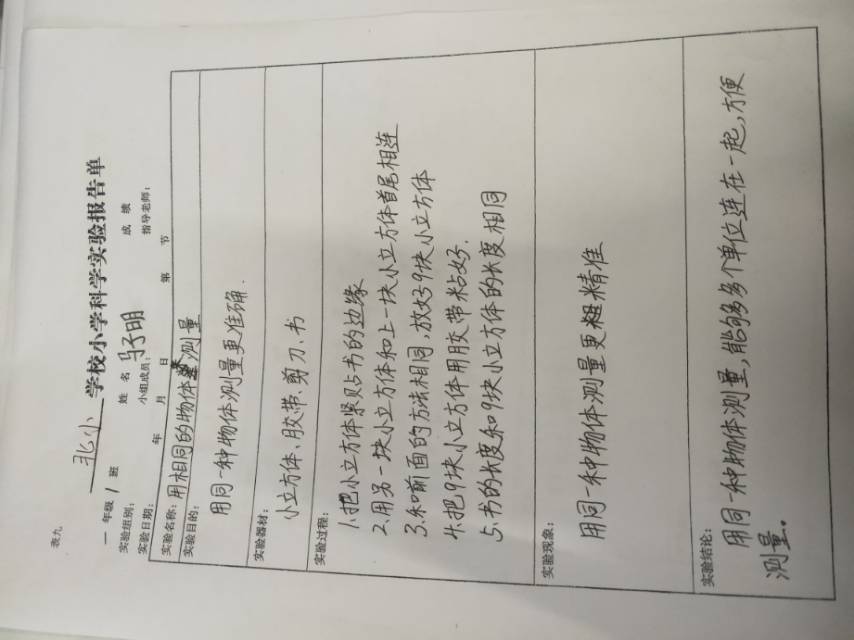 表九
北小学校小学科学实验报告单
一 年级 1 班 姓 名 马子明 成 绩
实验组别: 小组成员: 指导老师:
实验日期: 年 月 日 第 节
实验名称:用相同的物体测量
实验目的:
用同一种物体测量更准确.
实验器材:
小立方体、胶带、剪刀、书
实验过程:
1.把小立方体紧贴书的边缘
2.用另一块小立方体和上一块小立方体首尾相连
3.和前面的方法相同,放好9块小立方体
4.把9块小立方体用胶带粘好.
5.书的长度和9块小立方体的长度相同
实验现象:
用同一种物体测量更精准
实验结论:
用同一种物体测量,能够多个单位连在一起,方便
测量。